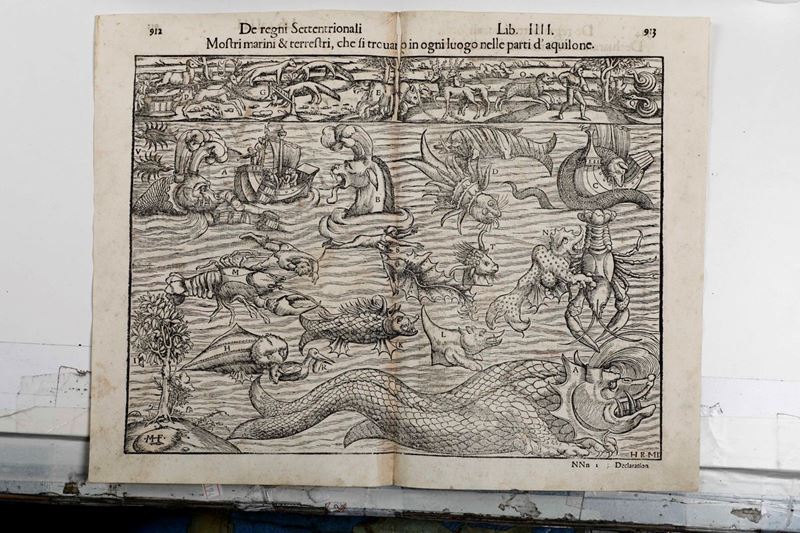 912 De regni Settentrionali Lib. IIII. 913
Mostri marini & terrestri, che si trouano in ogni luogo nelle parti d'aquilone.
V
A
B
D
C
S
T
N
M
K
H
MF
HRMD
NNn 1 Declaration